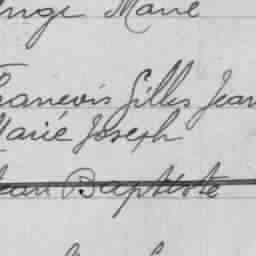 Ange Marie
Francois Gilles Jean
Marie Joseph
Jean Baptiste